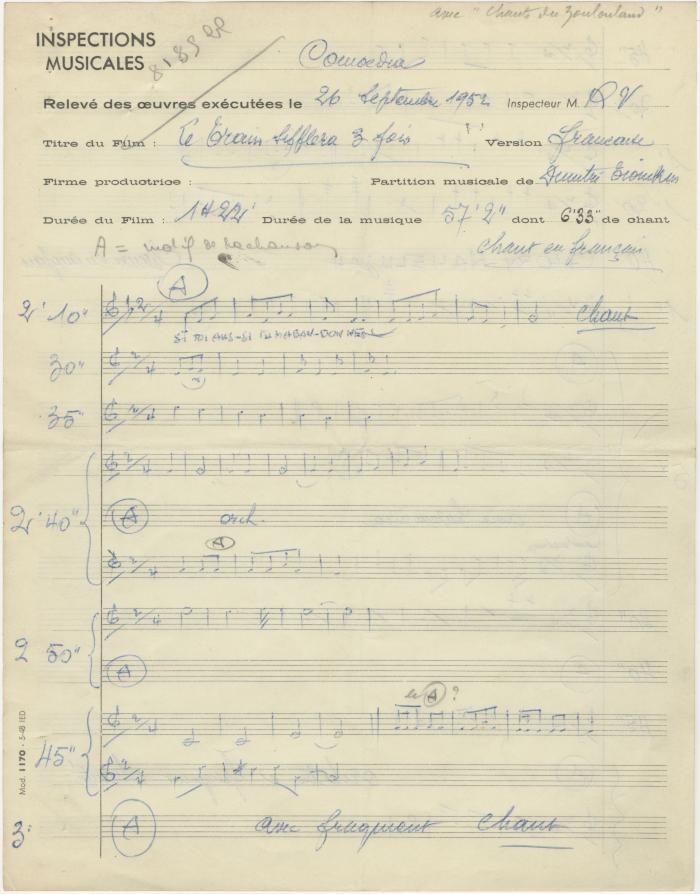 avec "Chants du Zoulouland"
INSPECTIONS
MUSICALES
Comoedia
Relevé des œuvres exécutées le 26 Septembre 1952 Inspecteur M. R V
Titre du Film : Le Train Sifflera 3 fois Version française
Firme productrice : Partition musicale de Dimitri Tiomkin
Durée du Film : 1H22' Durée de la musique 57'2" dont 6'33" de chant
A = motif de la chanson Chant en français
A
2'10" chant
SI TOI AUS-SI TU M'ABAN-DONNES
30"
35"
2'40" A orch.
A
2 50"
A
A ?
45"
3' A avec fragment Chant
Mod. 1170 - 5-48 IED